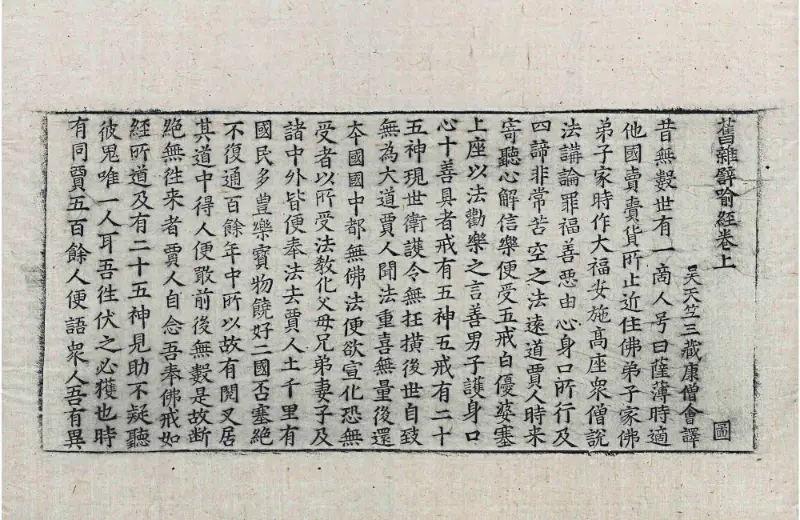 舊雜譬喻經卷上
圖
吳天竺三藏康僧會譯
昔無數世有一商人号曰薩薄時適
他國賣賣貨所止近住佛弟子家佛
弟子家時作大福安施高座衆僧說
法講論罪福善惡由心身口所行及
四諦非常苦空之法遠道賈人時来
寄聽心解信樂便受五戒白優婆塞
上座以法勸樂之言善男子護身口
心十善具者戒有五神五戒有二十
五神現世衛護令無抂撗後世自致
無為大道賈人聞法重喜無量後還
夲國國中都無佛法便欲宣化恐無
受者以所受法教化父母兄弟妻子及
諸中外皆便奉法去賈人土千里有
國民多豊樂寳物饒好二國否塞絕
不復通百餘年中所以故有閱叉居
其道中得人便噉前後無數是故断
絕無徃来者賈人自念吾奉佛戒如
經所道及有二十五神見助不疑聽
彼鬼唯一人耳吾徃伏之必獲也時
有同賈五百餘人便語衆人吾有異